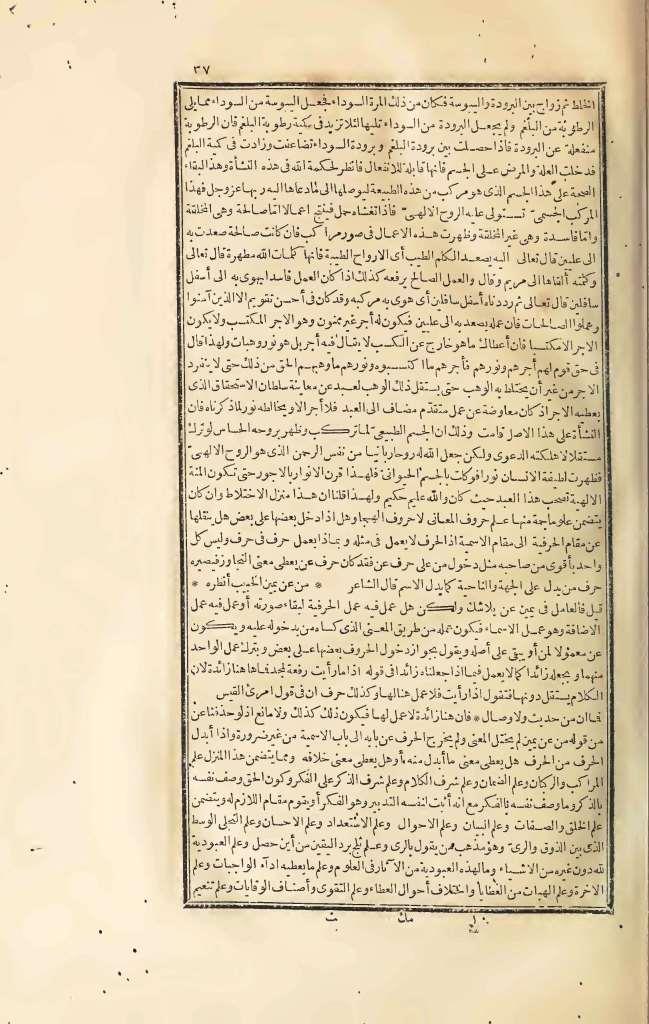 ٣٧
اختلط ثم زواج بين البرودة واليبوسة فكان من ذلك المرة السوداء فجعل اليبوسة من السوداء مما يلى
الرطوبة من البلغم ولم يجعل البرودة من السوداء تليها لئلا تزيد فى كمية رطوبة البلغم فان الرطوبة
منفعلة عن البرودة فاذا حصلت بين برودة البلغم وبرودة السوداء تضاعفت وزادت فى كمية البلغم
فدخلت العلة والمرض على الجسم فانها قابلة للانفعال فانظر لحكمة الله فى هذه النشأة وهذا البقاء
الصحة على هذا الجسم الذى هو مركب من هذه الطبيعة ليوصلها الى ما دعاها اليه ربها عز وجل فهذا
المركب الجسمى تستولى عليه الروح الالهى فاذا تغشاه حمل فينتج اعمالا اما صالحة وهى المخلقة
واما فاسدة وهى غير المخلقة وظهرت هذه الاعمال فى صور مراكب فان كانت صالحة صعدت به
الى عليين قال تعالى اليه يصعد الكلم الطيب أى الارواح الطيبة فانها كلمات الله مطهرة قال تعالى
وكلمته ألقاها الى مريم وقال والعمل الصالح يرفعه كذلك اذا كان العمل فاسدا يهوى به الى أسفل
سافلين قال تعالى ثم رددناه أسفل سافلين أى هوى به مركبه وقد كان فى أحسن تقويم الا الذين آمنوا
وعملوا الصالحات فان عمله يصعد به الى عليين فيكون له أجر غير ممنون وهو الاجر المكتسب ولا يكون
الاجر الا مكتسبا فان أعطاك ما هو خارج عن الكسب لا يقال فيه أجر بل هو نور وهبات ولهذا قال
فى حق قوم لهم أجرهم ونورهم فأجرهم ما اكتسبوه ونورهم ما وهبهم الحق من ذلك حتى لا ينفرد
الاجر من غير أن يختلط به الوهب حتى يستقل ذلك الوهب لعبد عن معاينة سلطان الاستحقاق الذى
يعطيه الاجر اذ كان معاوضة عن عمل متقدم مضاف الى العبد فلا أجر الا ويخالطه نور لما ذكرناه فان
النشأة على هذا الاصل قامت وذلك ان الجسم الطبيعى لما تركب وظهر بروحه الحساس لو ترك
مستقلا لاهلكته الدعوى ولكن جعل الله له روحا ربانيا من نفس الرحمن الذى هو الروح الالهى
فظهرت لطيفة الانسان نورا فوكات بالجسم الحيوانى فلهذا قرن الانوار بالاجور حتى تكون المنة
الالهية تصحب هذا العبد حيث كان والله عليم حكيم ولهذا قلنا ان هذا منزل الاختلاط وان كان
يتضمن علوما جمة منها علم حروف المعانى لا حروف الهجا وهل اذا دخل بعضها على بعض هل ينقلها
عن مقام الحرفية الى مقام الاسمية اذ الحرف لا يعمل فى مثله و بماذا يعمل حرف فى حرف وليس كل
واحد بأقوى من صاحبه مثل دخول من على عن فقد كان حرف عن يعطى معنى التجاوز فيصيره
حرف من يدل على الجهة والناحية كما يدل الاسم قال الشاعر * من عن يمين الحبيب أنظره *
قيل فالعامل فى يمين عن بلا شك ولكن هل عمل فيه عمل الحرفية لبقاء صورته أو عمل فيه عمل
الاضافة وهو عمل الاسماء فيكون عمله من طريق المعنى الذى كساه من بدخوله عليه ويكون
عن معمولا لمن أو يبقى على أصله ويقول بجواز دخول الحروف بعضها على بعض ويترك عمل الواحد
منهما ويجعله زائدا كما لا يعمل فيما اذا جعلناه زائدا فى قوله اذا ما رأيت رفعة لمجد فما ها هنا زائدة لان
الكلام يستقل دونها فتقول اذا رأيت فلا عمل هنا لها وكذلك حرف ان فى قول امرئ القيس
فما ان من حديث ولا وصال * فان هنا زائدة لا عمل لها فيكون ذلك كذلك ولا مانع اذ لو حذفنا عن
من قوله من عن يمين لم يختل المعنى ولم يخرج الحرف عن بابه الى باب الاسمية من غير ضرورة واذا أبدل
الحرف من الحرف هل يعطى معنى ما أبدل منه أو هل يعطى معنى خلافه ومما يتضمن هذا المنزل علم
المراكب والركبان وعلم الضمان وعلم شرف الكلام وعلم شرف الذكر على الفكر وكون الحق وصف نفسه
بالذكر وما وصف نفسه بالفكر مع انه أثبت لنفسه التدبير وهو الفكر أو يقوم مقام اللازم له ويتضمن
علم الخلق والصفات وعلم البيان وعلم الاحوال وعلم الاستعداد وعلم الاحسان وعلم التجلى الوسط
الذى بين الذوق والرى وهو مذهب من يقول بالرى وعلم ثلج برد اليقين من أين حصل وعلم العبودية
لله دون غيره من الاشياء وما لهذه العبودية من الآثار فى العلوم وعلم ما يعطيه اداء الواجبات وعلم
الاخرة وعلم الهبات من العطايا واختلاف أحوال العطاء وعلم التقوى وأصناف الوقايات وعلم تنعيم
مك